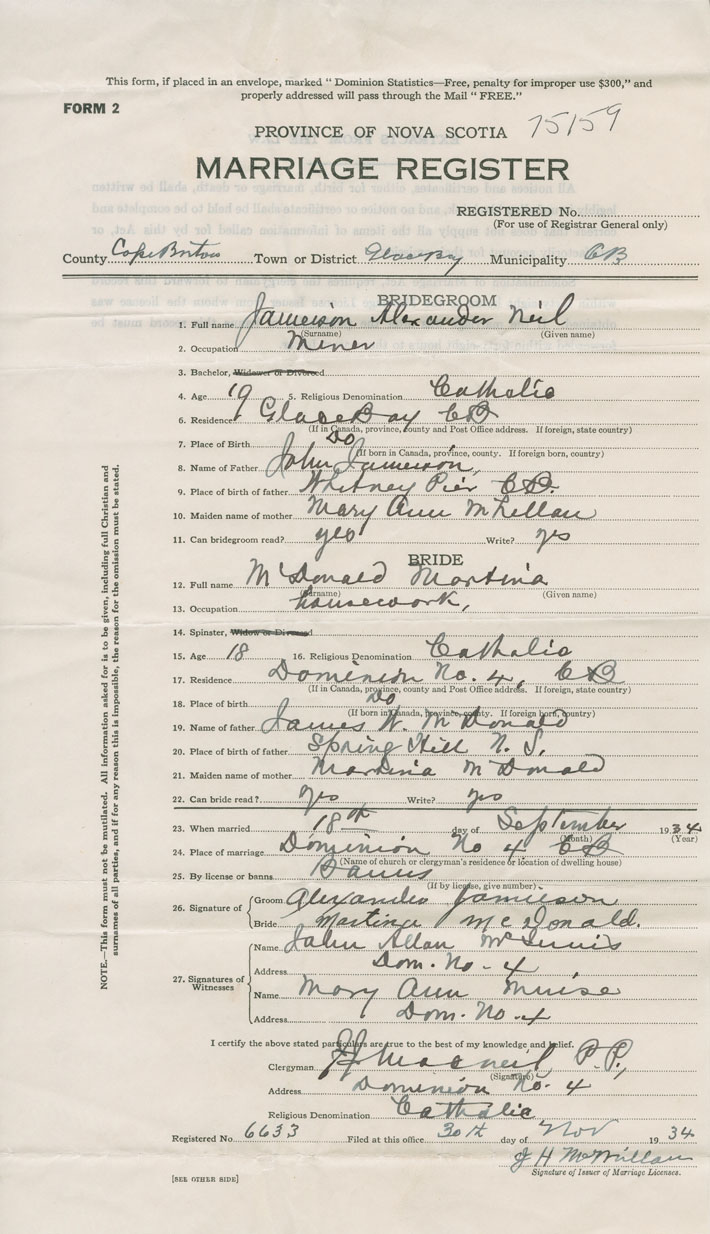 This form, if placed in an envelope, marked " Dominion Statistics—Free, penalty for improper use $300," and
properly addressed will pass through the Mail " FREE."
FORM 2
PROVINCE OF NOVA SCOTIA 75159
MARRIAGE REGISTER
REGISTERED No.
(For use of Registrar General only)
County Cape Breton Town or District Glace Bay Municipality CB
BRIDEGROOM
1. Full name Jameison Alexander Neil
(Surname) (Given name)
2. Occupation Miner
3. Bachelor, Widower or Divorced
4. Age 19 5. Religious Denomination Catholic
6. Residence Glace Bay CB
(If in Canada, province, county and Post Office address. If foreign, state country)
7. Place of Birth Do
(If born in Canada, province, county. If foreign born, country)
8. Name of Father John Jameison,
9. Place of birth of father Whitney Pier C.B.
10. Maiden name of mother Mary Ann McLellan
11. Can bridegroom read? yes Write? yes
BRIDE
12. Full name McDonald Martina
(Surname) (Given name)
13. Occupation housework,
14. Spinster, Widow or Divorced
15. Age 18 16. Religious Denomination Catholic
17. Residence Dominion No. 4, CB
(If in Canada, province, county and Post Office address. If foreign, state country)
18. Place of Birth Do
(If born in Canada, province, county. If foreign born, country)
19. Name of father James W. McDonald
20. Place of birth of father Spring Hill N. S.
21. Maiden name of mother Martina McDonald
22. Can bride read? yes Write? yes
23. When married 18th day of September 1934
(Month) (Year)
24. Place of marriage Dominion No 4 CB
(Name of church or clergyman's residence or location of dwelling house)
25. By license or banns Banns
(If by license, give number)
26. Signature of Groom Alexander Jamieson
Bride Martina McDonald.
27. Signatures of Witnesses
Name John Allan McInnis
Address Dom. No - 4
Name Mary Ann Muise
Address Dom. No - 4
I certify the above stated particulars are true to the best of my knowledge and belief.
Clergyman MacNeil, P.P.,
(Signature)
Address Dominion No. 4
Religious Denomination Catholic
Registered No. 6633 Filed at this office 30th day of Nov 1934
J H McMillan
Signature of Issuer of Marriage Licenses.
[SEE OTHER SIDE]
NOTE.—This form must not be mutilated. All information asked for is to be given, including full Christian and
surnames of all parties, and if for any reason this is impossible, the reason for the omission must be stated.